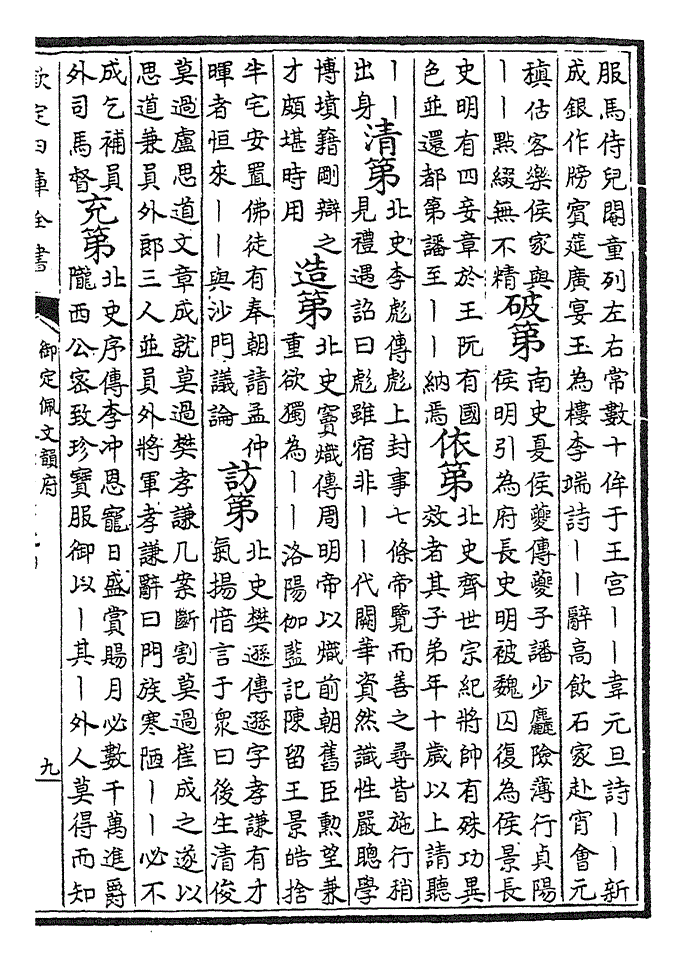 服馬侍兒閽童列左右常數十侔于王宫丨丨韋元旦詩丨丨新
成銀作牓賓莚廣宴玉為樓李端詩丨丨辭高飲石家赴宵會元
稹估客樂侯家與
丨丨點綴無不精
破第
南史夏侯夔傳夔子譒少麤險薄行貞陽
侯明引為府長史明被魏囚復為侯景長
史明有四妾章於王阮有國
色並還都第譒至丨丨納焉
依第
北史齊世宗紀將帥有殊功異
效者其子弟年十歲以上請聽
丨丨
出身
清第
北史李彪傳彪上封事七條帝覽而善之尋皆施行稍
見禮遇詔曰彪雖宿非丨丨代闕華資然識性嚴聰學
博墳籍剛辯之
才頗堪時用
造第
北史竇熾傳周明帝以熾前朝舊臣勲望兼
重欲獨為丨丨洛陽伽藍記陳留王景皓捨
半宅安置佛徒有奉朝請孟仲
暉者恒來丨丨與沙門議論
訪第
北史樊遜傳遜字孝謙有才
氣揚愔言于衆曰後生清俊
莫過盧思道文章成就莫過樊孝謙几案斷割莫過崔成之遂以
思道兼員外郎三人並員外將軍孝謙辭曰門族寒陋丨丨必不
成乞補員
外司馬督
充第
北史序傳李冲恩寵日盛賞賜月必數千萬進爵
隴西公密致珍寶服御以丨其丨外人莫得而知
欽定四庫全書
御定佩文韻府
九